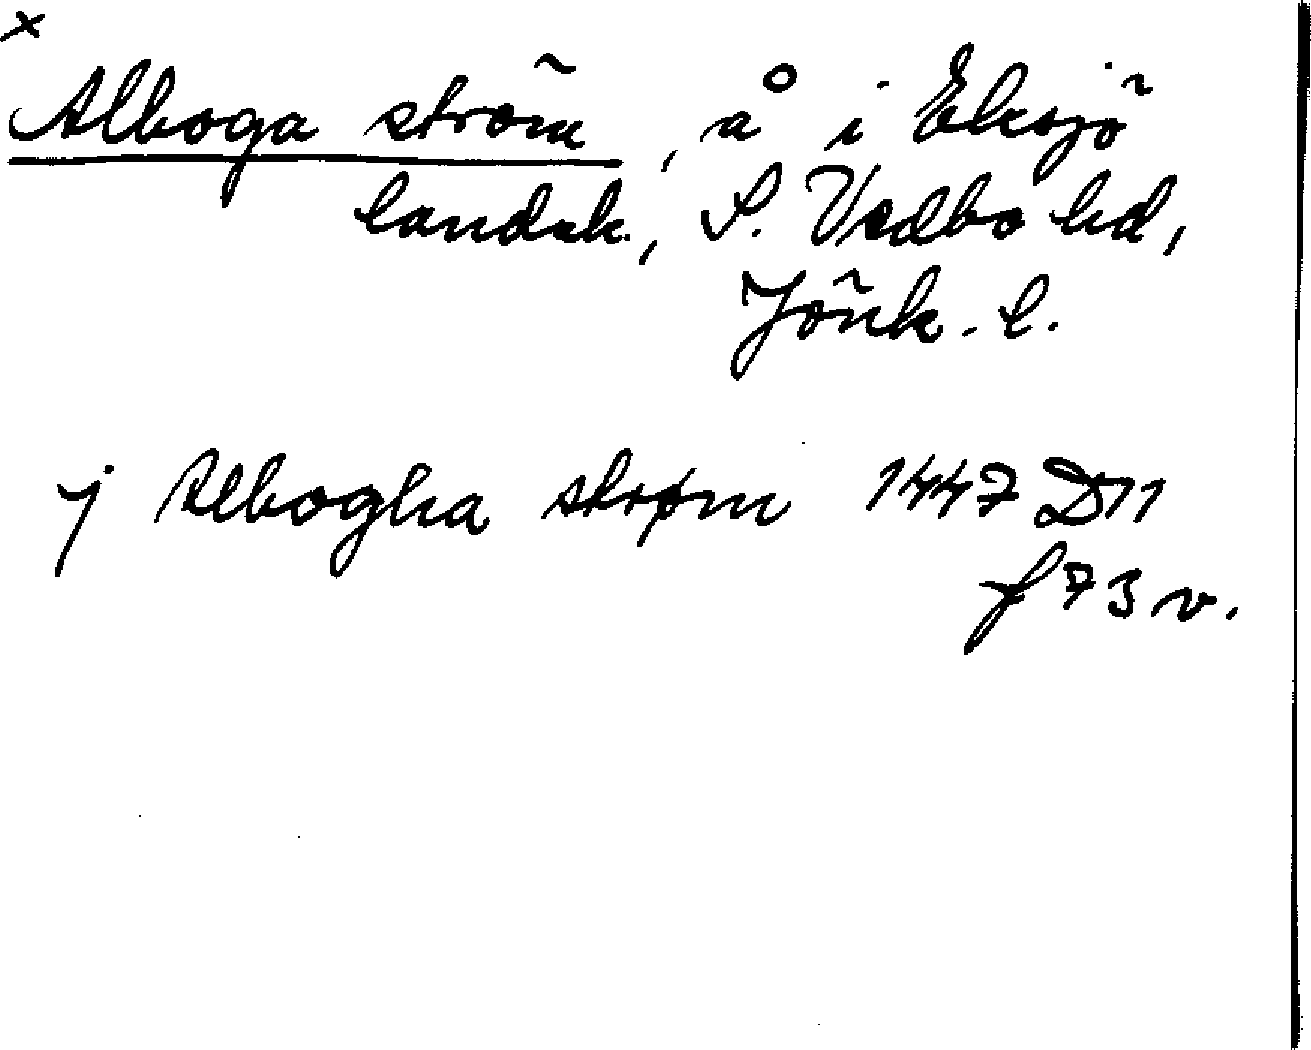 x
Alboga ström, å i Eksjö
landsk., S. Vedbo hd,
Jönk. l.
j Albogha strøm 1447 D11
f 73 v.